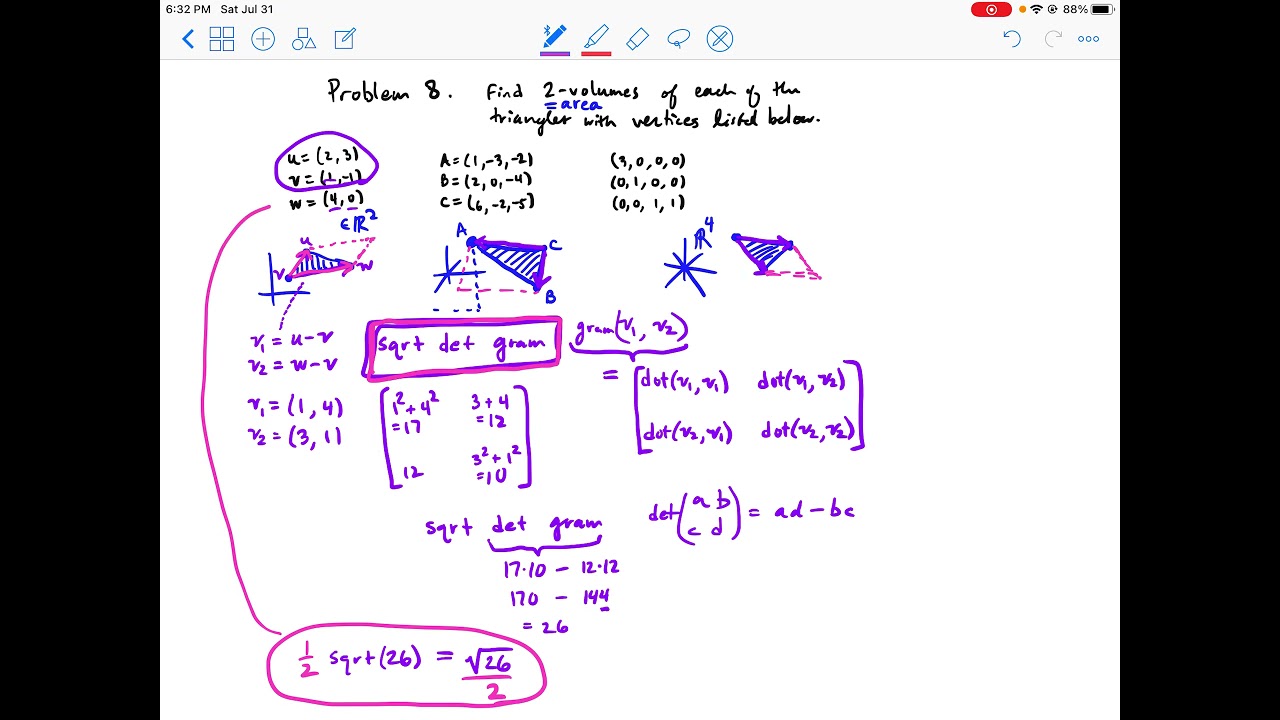 6:32 PM Sat Jul 31
88%
Problem 8. Find 2-volumes of each of the
= area
triangles with vertices listed below.
u = (2, 3)
v = (1, -1)
w = (4, 0)
∈ ℝ²
A = (1, -3, -2)
B = (2, 0, -4)
C = (6, -2, -5)
(3, 0, 0, 0)
(0, 1, 0, 0)
(0, 0, 1, 1)
u
v
w
A
C
B
ℝ⁴
v₁ = u - v
v₂ = w - v
sqrt det gram
gram(v₁, v₂)
= [dot(v₁, v₁) dot(v₁, v₂)
dot(v₂, v₁) dot(v₂, v₂)]
v₁ = (1, 4)
v₂ = (3, 1)
[1² + 4² 3 + 4
= 17 = 12
12 3² + 1²
= 10]
sqrt det gram
det(a b
c d) = ad - bc
17·10 - 12·12
170 - 144
= 26
1/2 sqrt(26) = √26/2